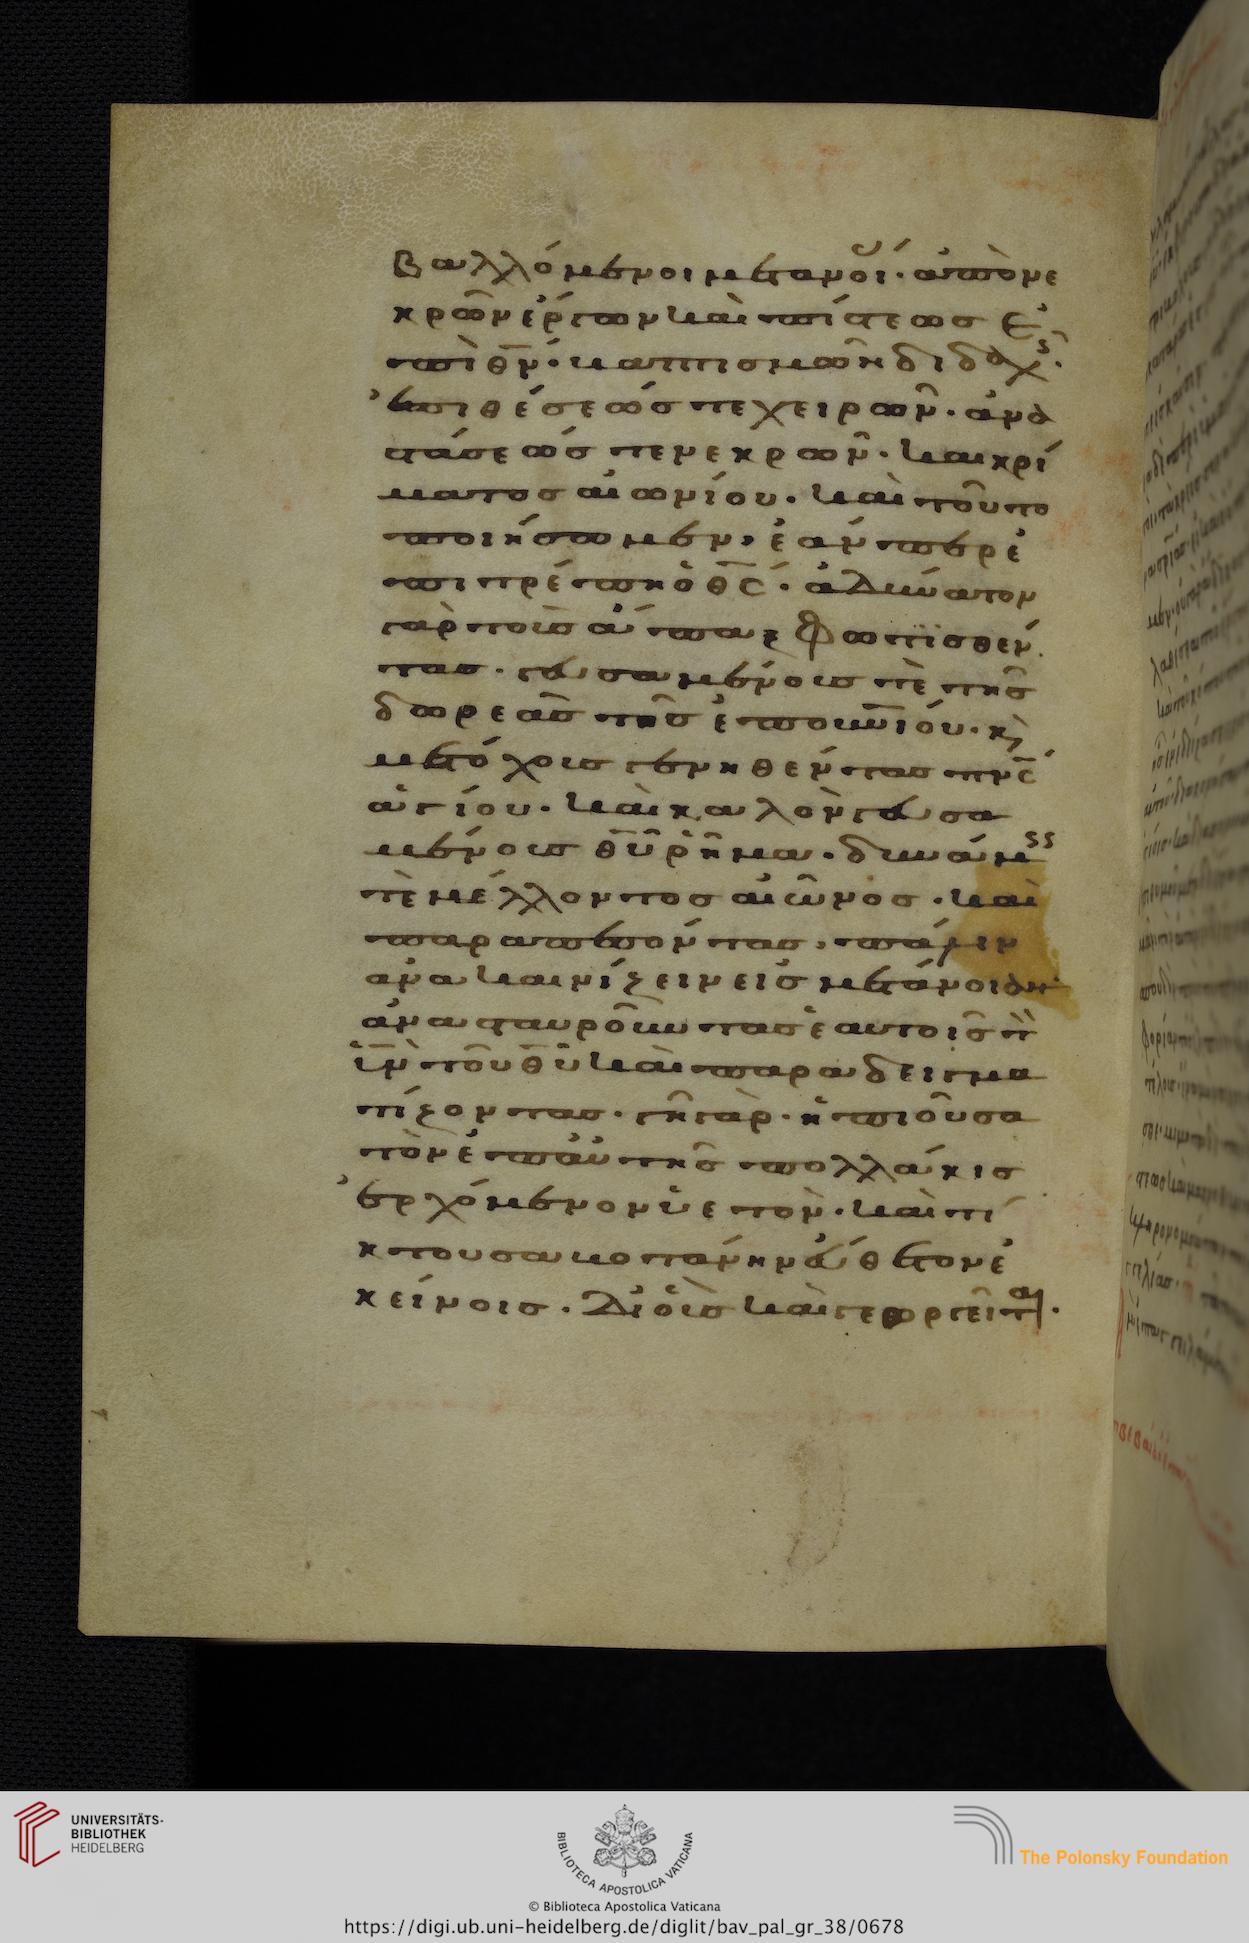 βαλλόμενοι μετανοί· ἀπὸ νε
κρῶν ἔργων καὶ πίστεως ἐ
πὶ θν· βαπτισμῶν διδαχς·
ἐπιθέσεώς τε χειρῶν· ἀνα
στάσεώς τε νεκρῶν· καὶ κρί
ματος αἰωνίου· καὶ τοῦτο
ποιήσωμεν, ἐάνπερ ἐ
πιτρέπη ὁ θς· ἀδύνατον
γὰρ τοὺς ἅπαξ φωτισθέν
τας· γευσαμένους τὲ τῆς
δωρεᾶς τῆς ἐπουνίου· κ
μετόχους γενηθέντας πνς
ἁγίου· καὶ καλὸν γευσα
μένους θυ ῥῆμα· δυνάμς
τὲ μέλλοντος αἰῶνος· καὶ
παραπεσόντας, πάλιν
ἀνακαινίζειν εἰς μετάνοιαν
ἀνασταυροῦντας ἑαυτοῖς τ
ὑν τοῦ θυ καὶ παραδειγμα
τίζοντας· γῆ γὰρ· ἡ πιοῦσα
τὸν ἐπ' αὐτῆς πολλάκις
ἐρχόμενον ὑετὸν· καὶ τί
κτουσα βοτάνην εὔθετον ἐ
κείνοις· δι' οὓς καὶ γεωργεῖται·
UNIVERSITÄTS-
BIBLIOTHEK
HEIDELBERG
BIBLIOTECA APOSTOLICA VATICANA
The Polonsky Foundation
© Biblioteca Apostolica Vaticana
https://digi.ub.uni-heidelberg.de/diglit/bav_pal_gr_38/0678